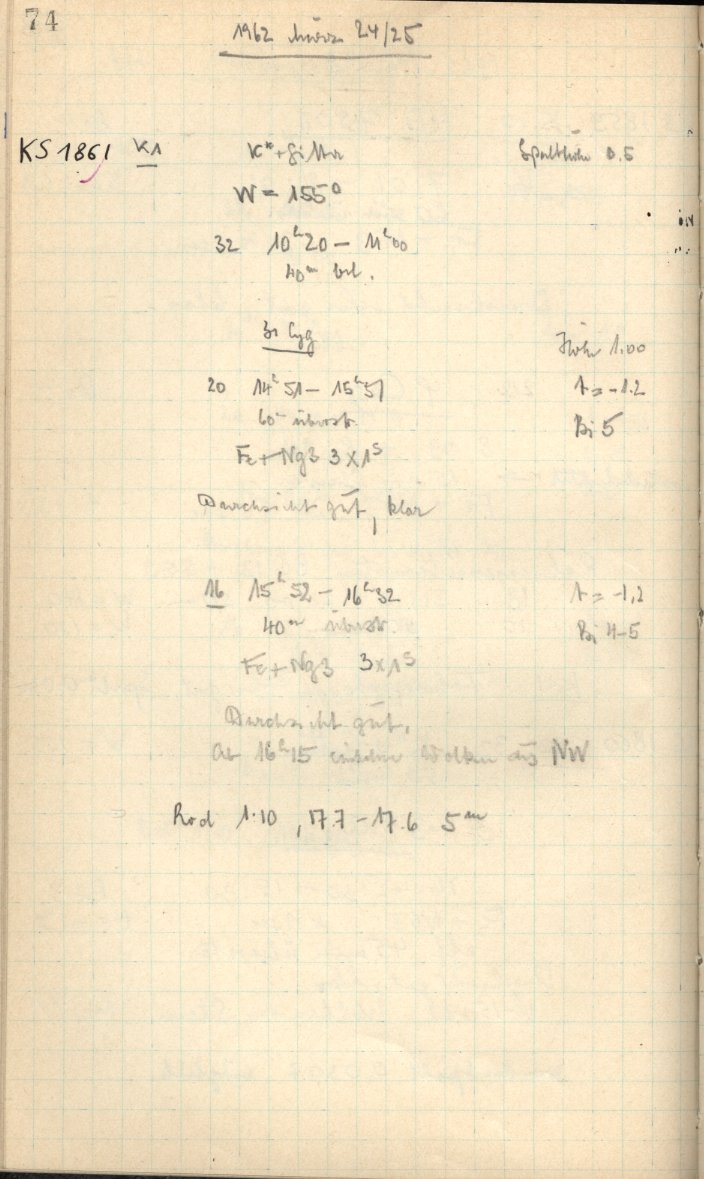 74
1962 März 24/25
KS 1861 K1 K*+Gitter Spalthöhe 0.5
W = 155°
32 10h20 – 11h00
40m bel.
31 Cyg
Höhe 1.00
20 14h51 – 15h51 t = -1.2
60m Bi 5
Fe + Ng3 3x1s
Durchsicht gut, klar
16 15h52 – 16h32 t = -1,2
40m Bi 4-5
Fe + Ng3 3x1s
Durchsicht gut,
Ab 16h15 einzelne Wolken aus NW
Rod 1.10, 17.7 – 17.6 5m